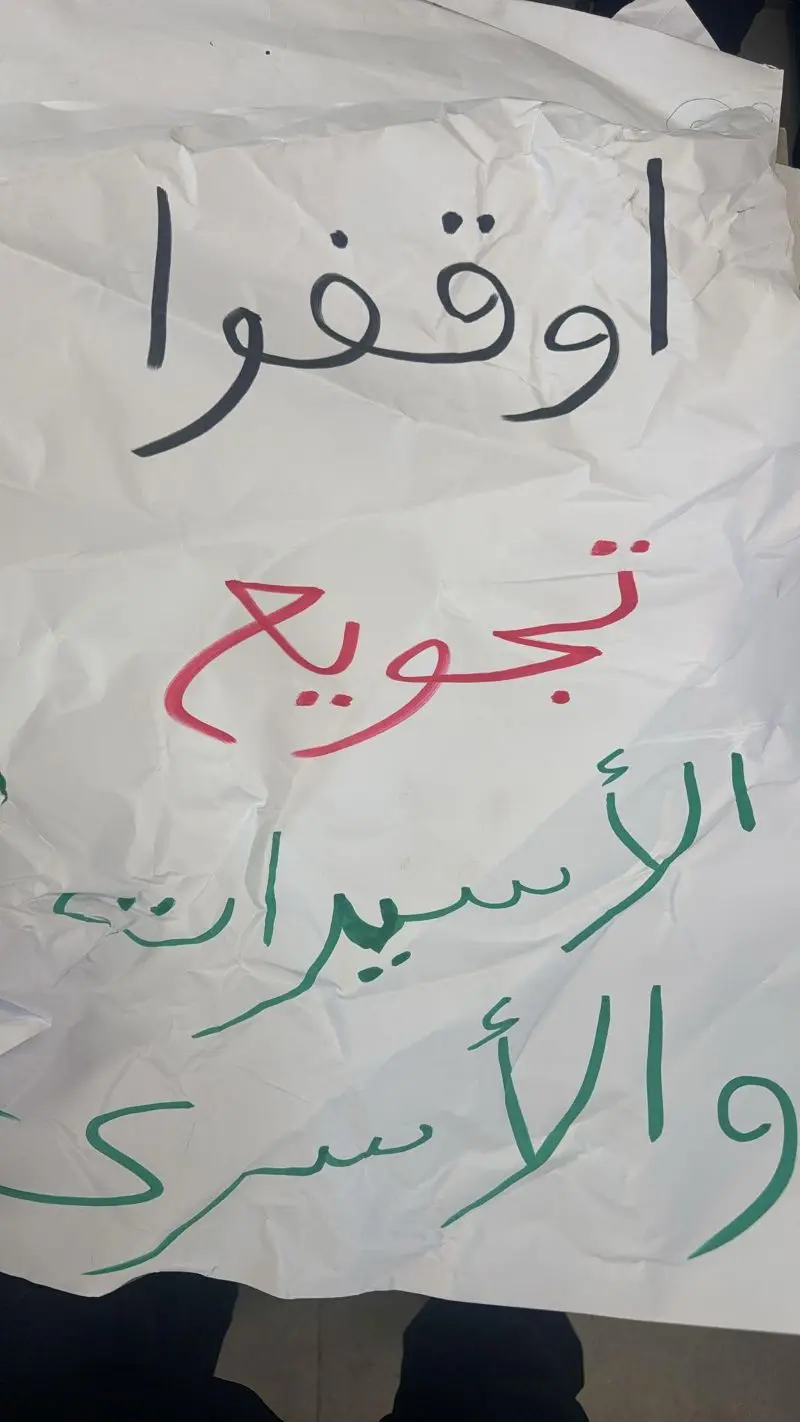 اوقفوا
تجويع
الأسيرات
والأسرى